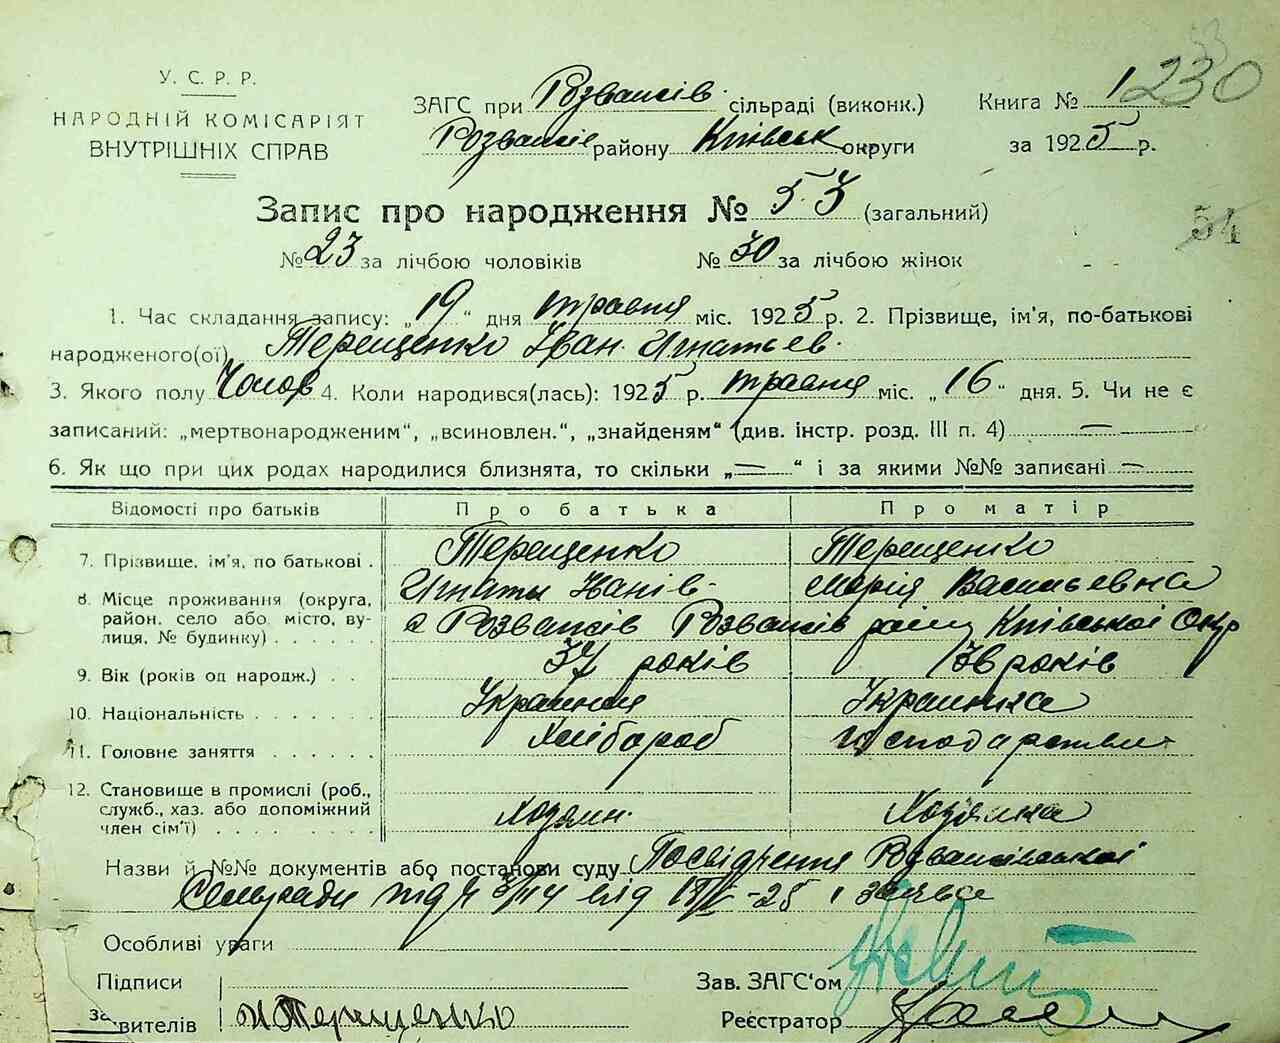 У. С. Р. Р.
НАРОДНІЙ КОМІСАРІЯТ
ВНУТРІШНІХ СПРАВ
ЗАГС при Розважів сільраді (виконк.)
Розважів району Київськ округи
Книга № 1 230
за 1925 р.
Запис про народження № 53 (загальний)
54
№ 23 за лічбою чоловіків № 30 за лічбою жінок
1. Час складання запису: „19“ дня травня міс. 1925 р. 2. Прізвище, ім'я, по-батькові
народженого(ої) Терещенко Іван Игнатьев.
3. Якого полу Чолов 4. Коли народився(лась): 1925 р. травня міс. „16“ дня. 5. Чи не є
записаний: „мертвонародженим“, „всиновлен.“, „знайденям“ (див. інстр. розд. III п. 4) —
6. Як що при цих родах народилися близнята, то скільки „—“ і за якими №№ записані —
Відомості про батьків Про батька Про матір
7. Прізвище, ім'я, по батькові . Терещенко Терещенко
Игнаты Марія Васильевна
8. Місце проживання (округа,
район, село або місто, ву-
лиця, № будинку) . . . . . . с Розважів Розважів району Київської Окр
9. Вік (років од народж.) . . 37 років 38 років
10. Національність . . . . . . . Украинец Украинка
11. Головне заняття . . . . . . Хлібороб
12. Становище в промислі (роб.,
служб., хаз. або допоміжний
член сім'ї) . . . . . . . . . Хозяин. Хозяйка
Назви й №№ документів або постанови суду Посвідчення Розважівської
Сельради від і заява
Особливі уваги
Підписи
заявителів И Терещенко
Зав. ЗАГС'ом
Реєстратор